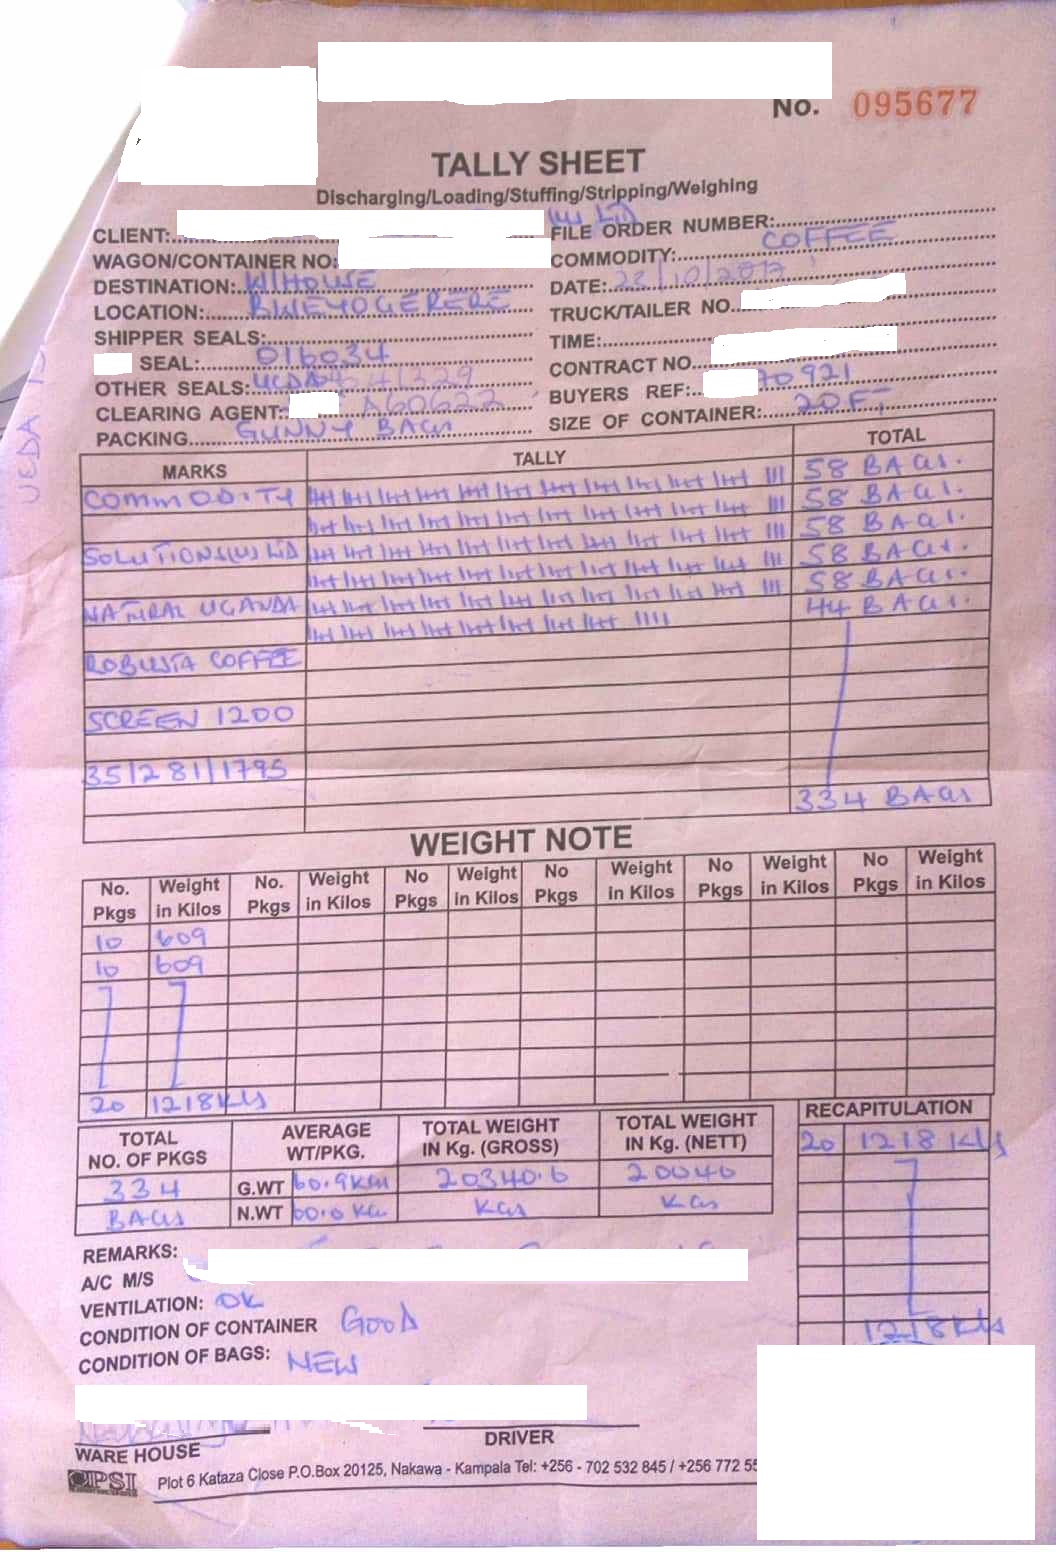 No. 095677
TALLY SHEET
Discharging/Loading/Stuffing/Stripping/Weighing
CLIENT: (U) LTD
FILE ORDER NUMBER:
WAGON/CONTAINER NO:
COMMODITY: COFFEE
DESTINATION: W/HOUSE
DATE: 23/10/2017
LOCATION: BWEYOGERERE
TRUCK/TAILER NO.
SHIPPER SEALS:
TIME:
SEAL: 016034
CONTRACT NO.
OTHER SEALS: UCDA
BUYERS REF: 70921
CLEARING AGENT: A60622
SIZE OF CONTAINER: 20FT
PACKING GUNNY BAGS
UCDA
MARKS TALLY TOTAL
COMMODITY 58 BAGS.
58 BAGS.
SOLUTIONS(U) LTD 58 BAGS.
58 BAGS.
NATURAL UGANDA 58 BAGS.
44 BAGS.
ROBUSTA COFFEE
SCREEN 1200
35/281/1795
334 BAGS
WEIGHT NOTE
No. Pkgs Weight in Kilos No. Pkgs Weight in Kilos No Pkgs Weight in Kilos No Pkgs Weight in Kilos No Pkgs Weight in Kilos No Pkgs Weight in Kilos
10 609
10 609
20 1218KGS
TOTAL NO. OF PKGS AVERAGE WT/PKG. TOTAL WEIGHT IN Kg. (GROSS) TOTAL WEIGHT IN Kg. (NETT)
334 G.WT 60.9KGS 20340.6 20040
BAGS N.WT 60.0 KGS KGS KGS
RECAPITULATION
20 1218 KGS
1218KGS
REMARKS:
A/C M/S
VENTILATION: OK
CONDITION OF CONTAINER GOOD
CONDITION OF BAGS: NEW
WARE HOUSE
DRIVER
PSI Plot 6 Kataza Close P.O.Box 20125, Nakawa - Kampala Tel: +256 - 702 532 845 / +256 772 55